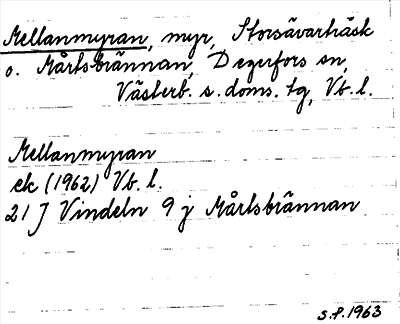 Mellanmyran, myr, Storsävarträsk
o. Mårtsbrännan, Degerfors sn,
Västerb. s. doms. tg, Vb. l.
Mellanmyran
ek (1962) Vb. l.
21 J Vindeln 9 j Mårtsbrännan
S.P. 1963